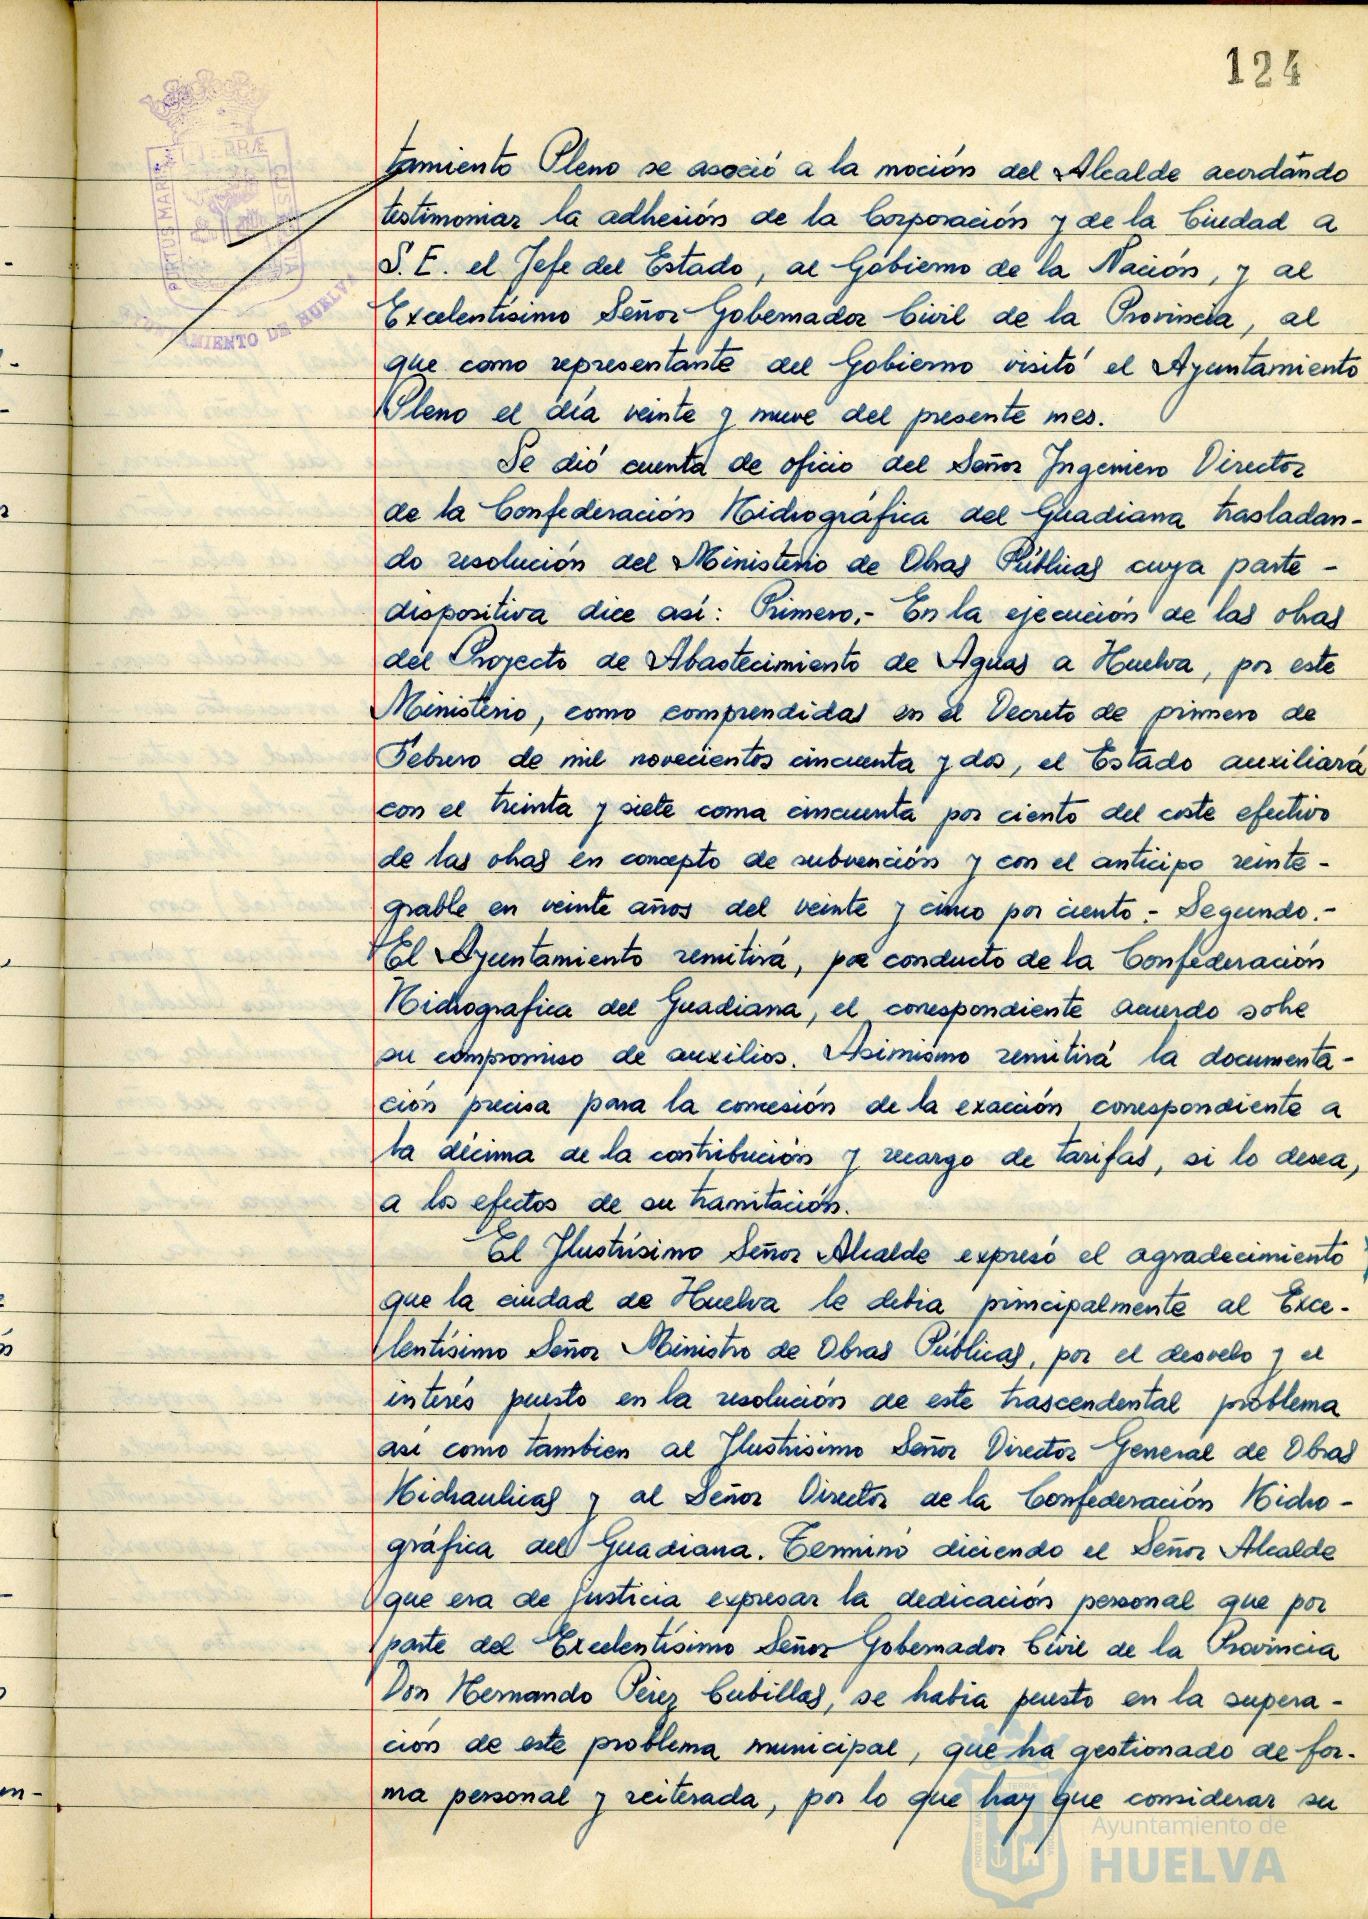 124
PORTUS MARIS ET TERRÆ CUSTODIA
AYUNTAMIENTO DE HUELVA
tamiento Pleno se asoció a la moción del Alcalde acordando
testimoniar la adhesión de la Corporación y de la Ciudad a
S.E. el Jefe del Estado, al Gobierno de la Nación, y al
Excelentísimo Señor Gobernador Civil de la Provincia, al
que como representante del Gobierno visitó el Ayuntamiento
Pleno el día veinte y nueve del presente mes.
Se dió cuenta de oficio del Señor Ingeniero Director
de la Confederación Hidrográfica del Guadiana trasladan-
do resolución del Ministerio de Obras Públicas cuya parte -
dispositiva dice así: Primero.- En la ejecución de las obras
del Proyecto de Abastecimiento de Aguas a Huelva, por este
Ministerio, como comprendidas en el Decreto de primero de
Febrero de mil novecientos cincuenta y dos, el Estado auxiliará
con el treinta y siete coma cincuenta por ciento del coste efectivo
de las obras en concepto de subvención y con el anticipo reinte-
grable en veinte años del veinte y cinco por ciento.- Segundo.-
El Ayuntamiento remitirá, por conducto de la Confederación
Hidrografica del Guadiana, el correspondiente acuerdo sobre
su compromiso de auxilios. Asimismo remitirá la documenta-
ción precisa para la concesión de la exacción correspondiente a
la décima de la contribución y recargo de tarifas, si lo desea,
a los efectos de su tramitación.
El Ilustrísimo Señor Alcalde expresó el agradecimiento
que la ciudad de Huelva le debia principalmente al Exce-
lentísimo Señor Ministro de Obras Públicas, por el desvelo y el
interés puesto en la resolución de este trascendental problema
así como tambien al Ilustrisimo Señor Director General de Obras
Hidraulicas y al Señor Director de la Confederación Hidro-
gráfica del Guadiana. Terminó diciendo el Señor Alcalde
que era de justicia expresar la dedicación personal que por
parte del Excelentísimo Señor Gobernador Civil de la Provincia
Don Hernando Pérez Cubillas, se habia puesto en la supera-
ción de este problema municipal, que ha gestionado de for-
ma personal y reiterada, por lo que hay que considerar su
Ayuntamiento de
HUELVA